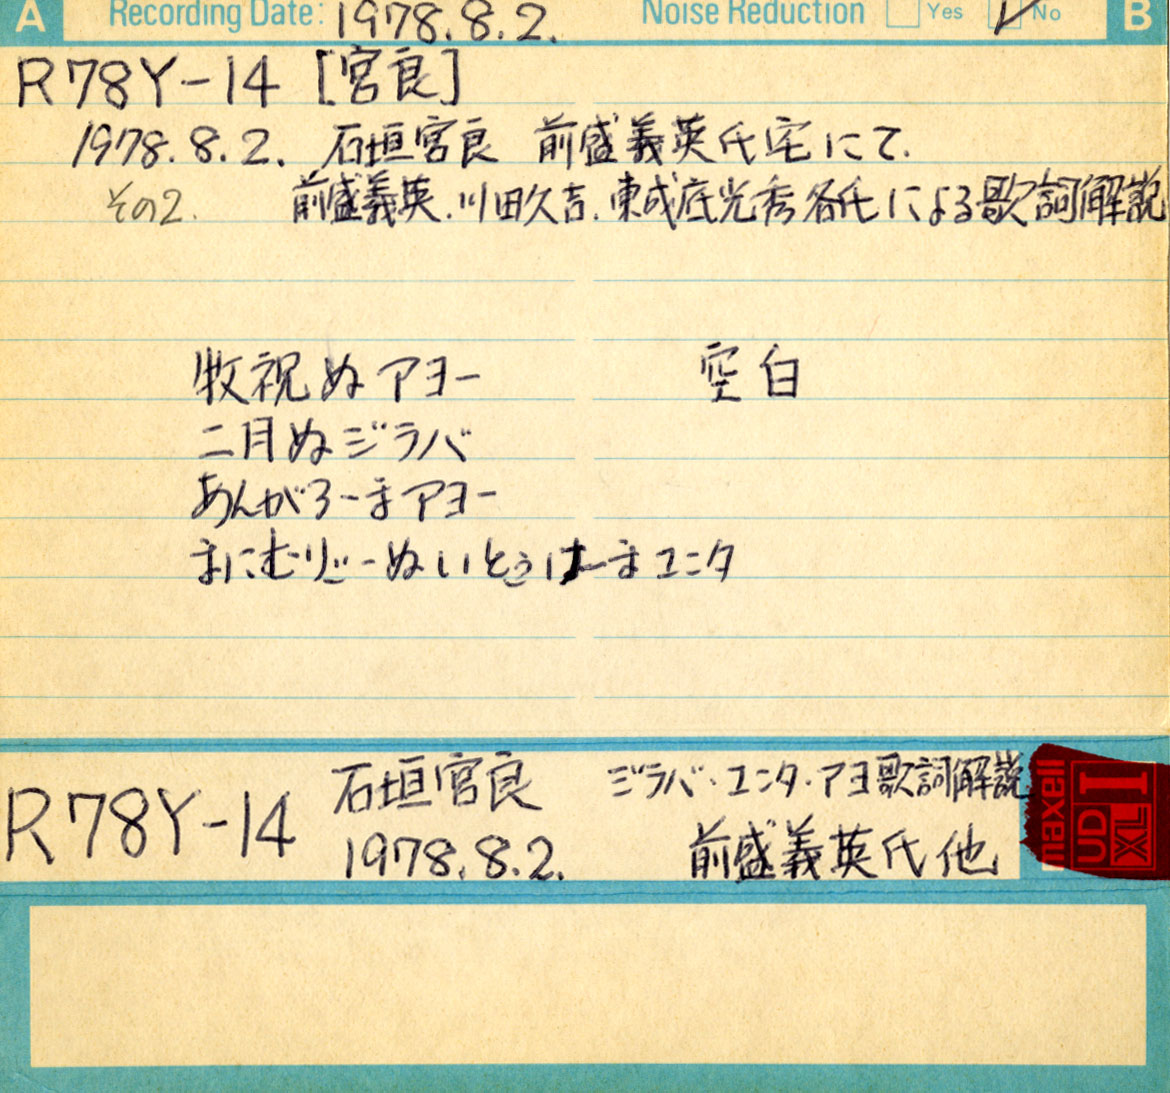 A Recording Date: 1978.8.2. Noise Reduction Yes No B
R78Y-14 [宮良]
1978.8.2. 石垣宮良 前盛義英氏宅にて.
その2. 前盛義英.川田久吉.東成底光秀各氏による歌詞解説
牧祝ぬアヨー 空白
二月ぬジラバ
あんがろーまアヨー
まにむりじーぬいとぅはーまユンタ
R78Y-14 石垣宮良 ジラバ・ユンタ・アヨ歌詞解説
1978.8.2. 前盛義英氏他
maxell UD XL I